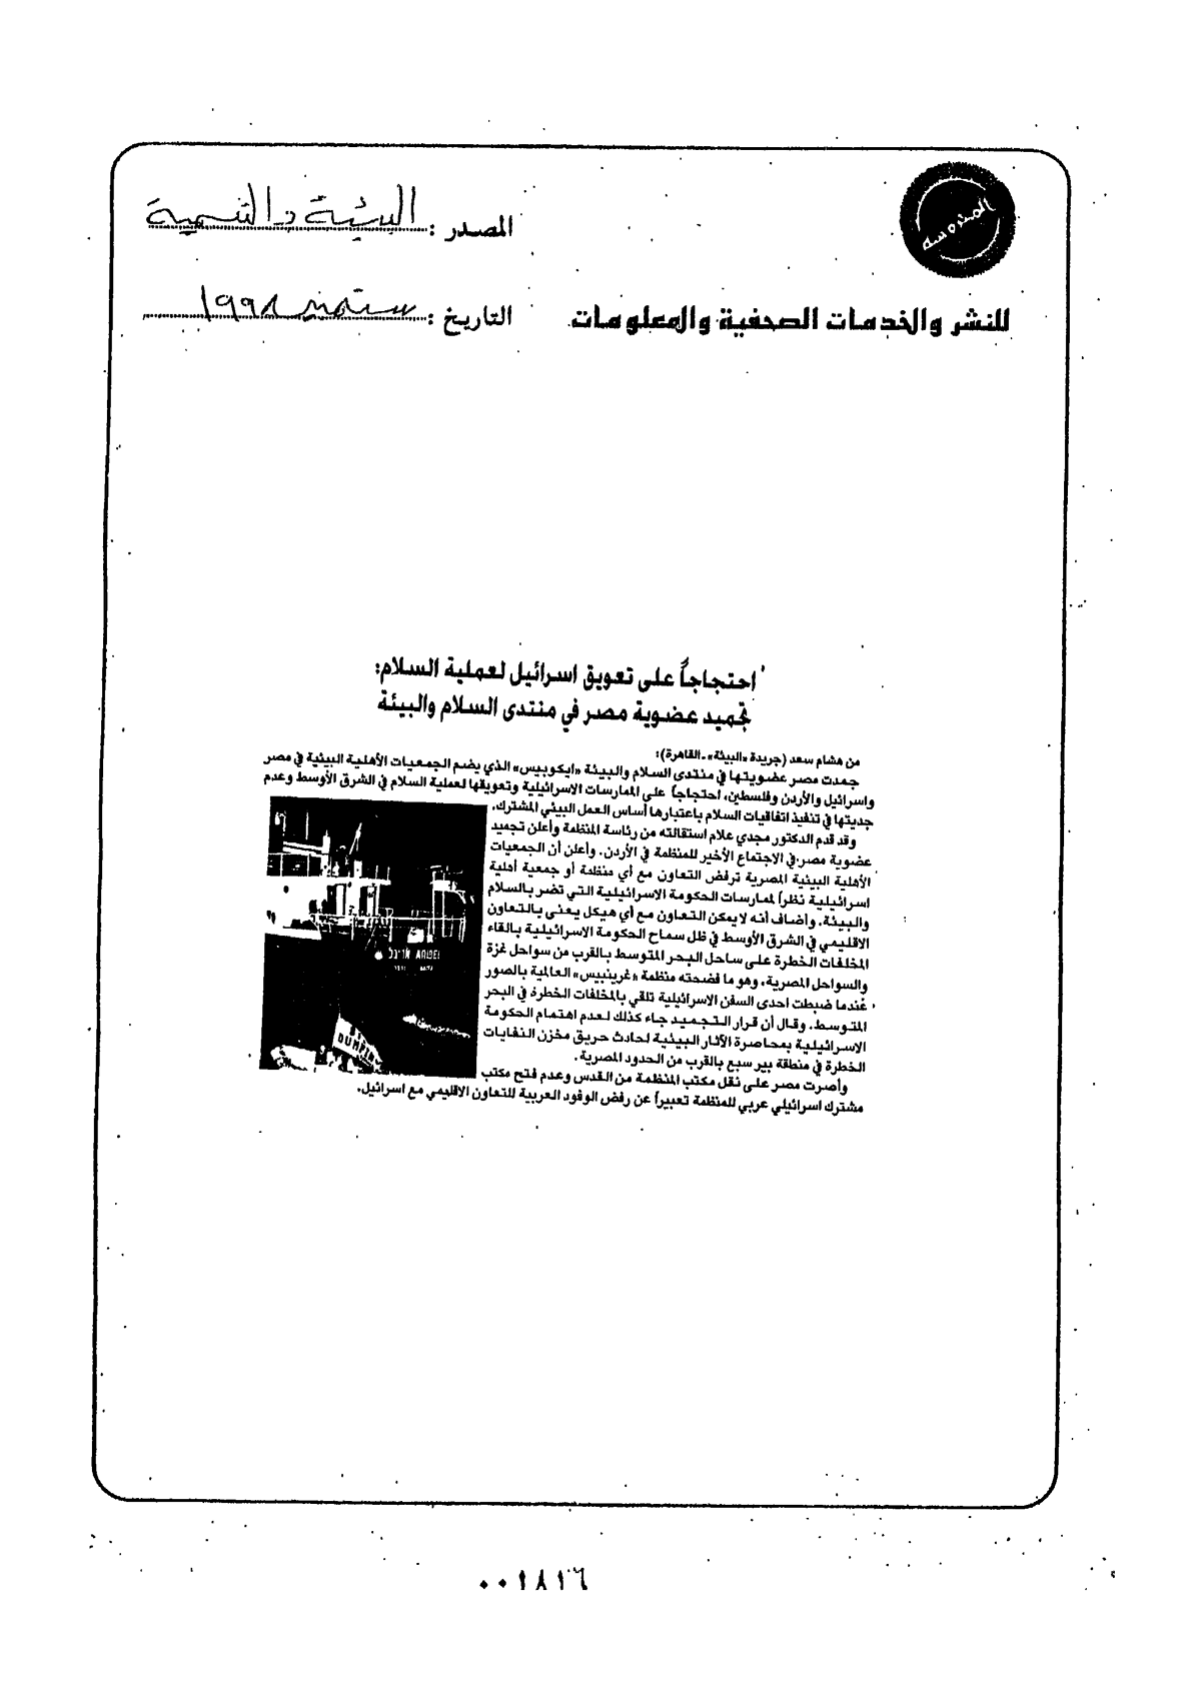 المحروسة
المصدر : البيئة والتنمية
للنشر والخدمات الصحفية والمعلومات
التاريخ : سبتمبر ١٩٩٨
احتجاجاً على تعويق اسرائيل لعملية السلام:
تجميد عضوية مصر في منتدى السلام والبيئة
من هشام سعد (جريدة «البيئة»ـ القاهرة):
جمدت مصر عضويتها في منتدى السلام والبيئة «ايكوبيس» الذي يضم الجمعيات الأهلية البيئية في مصر
واسرائيل والأردن وفلسطين، احتجاجاً على الممارسات الاسرائيلية وتعويقها لعملية السلام في الشرق الأوسط وعدم
جديتها في تنفيذ اتفاقيات السلام باعتبارها أساس العمل البيئي المشترك.
وقد قدم الدكتور مجدي علام استقالته من رئاسة المنظمة وأعلن تجميد
عضوية مصر في الاجتماع الأخير للمنظمة في الأردن. وأعلن أن الجمعيات
الأهلية البيئية المصرية ترفض التعاون مع أي منظمة أو جمعية أهلية
اسرائيلية نظراً لممارسات الحكومة الاسرائيلية التي تضر بالسلام
والبيئة. وأضاف أنه لا يمكن التعاون مع أي هيكل يعنى بالتعاون
الاقليمي في الشرق الأوسط في ظل سماح الحكومة الاسرائيلية بالقاء
المخلفات الخطرة على ساحل البحر المتوسط بالقرب من سواحل غزة
والسواحل المصرية، وهو ما فضحته منظمة «غرينبيس» العالمية بالصور
عندما ضبطت احدى السفن الاسرائيلية تلقي بالمخلفات الخطرة في البحر
المتوسط. وقال أن قرار التجميد جاء كذلك لعدم اهتمام الحكومة
الإسرائيلية بمحاصرة الآثار البيئية لحادث حريق مخزن النفايات
الخطرة في منطقة بير سبع بالقرب من الحدود المصرية.
وأصرت مصر على نقل مكتب المنظمة من القدس وعدم فتح مكتب
مشترك اسرائيلي عربي للمنظمة تعبيراً عن رفض الوفود العربية للتعاون الاقليمي مع اسرائيل.
٠٠١٨١٦